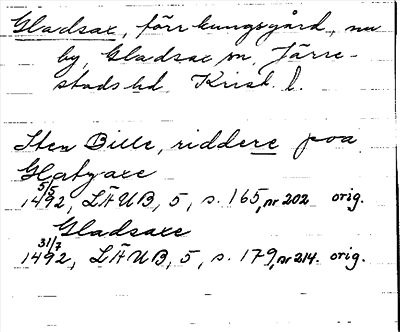 Gladsax, förr kungsgård, nu
by, Gladsax sn, Järre-
stads hd Krist. l.
Sten Bille, riddere poa
Glatzaxe
5/5
1492, LÄUB, 5, s. 165, nr 202 orig.
Gladsaxe
31/7
1492, LÄUB, 5, s. 179, nr 214. orig.